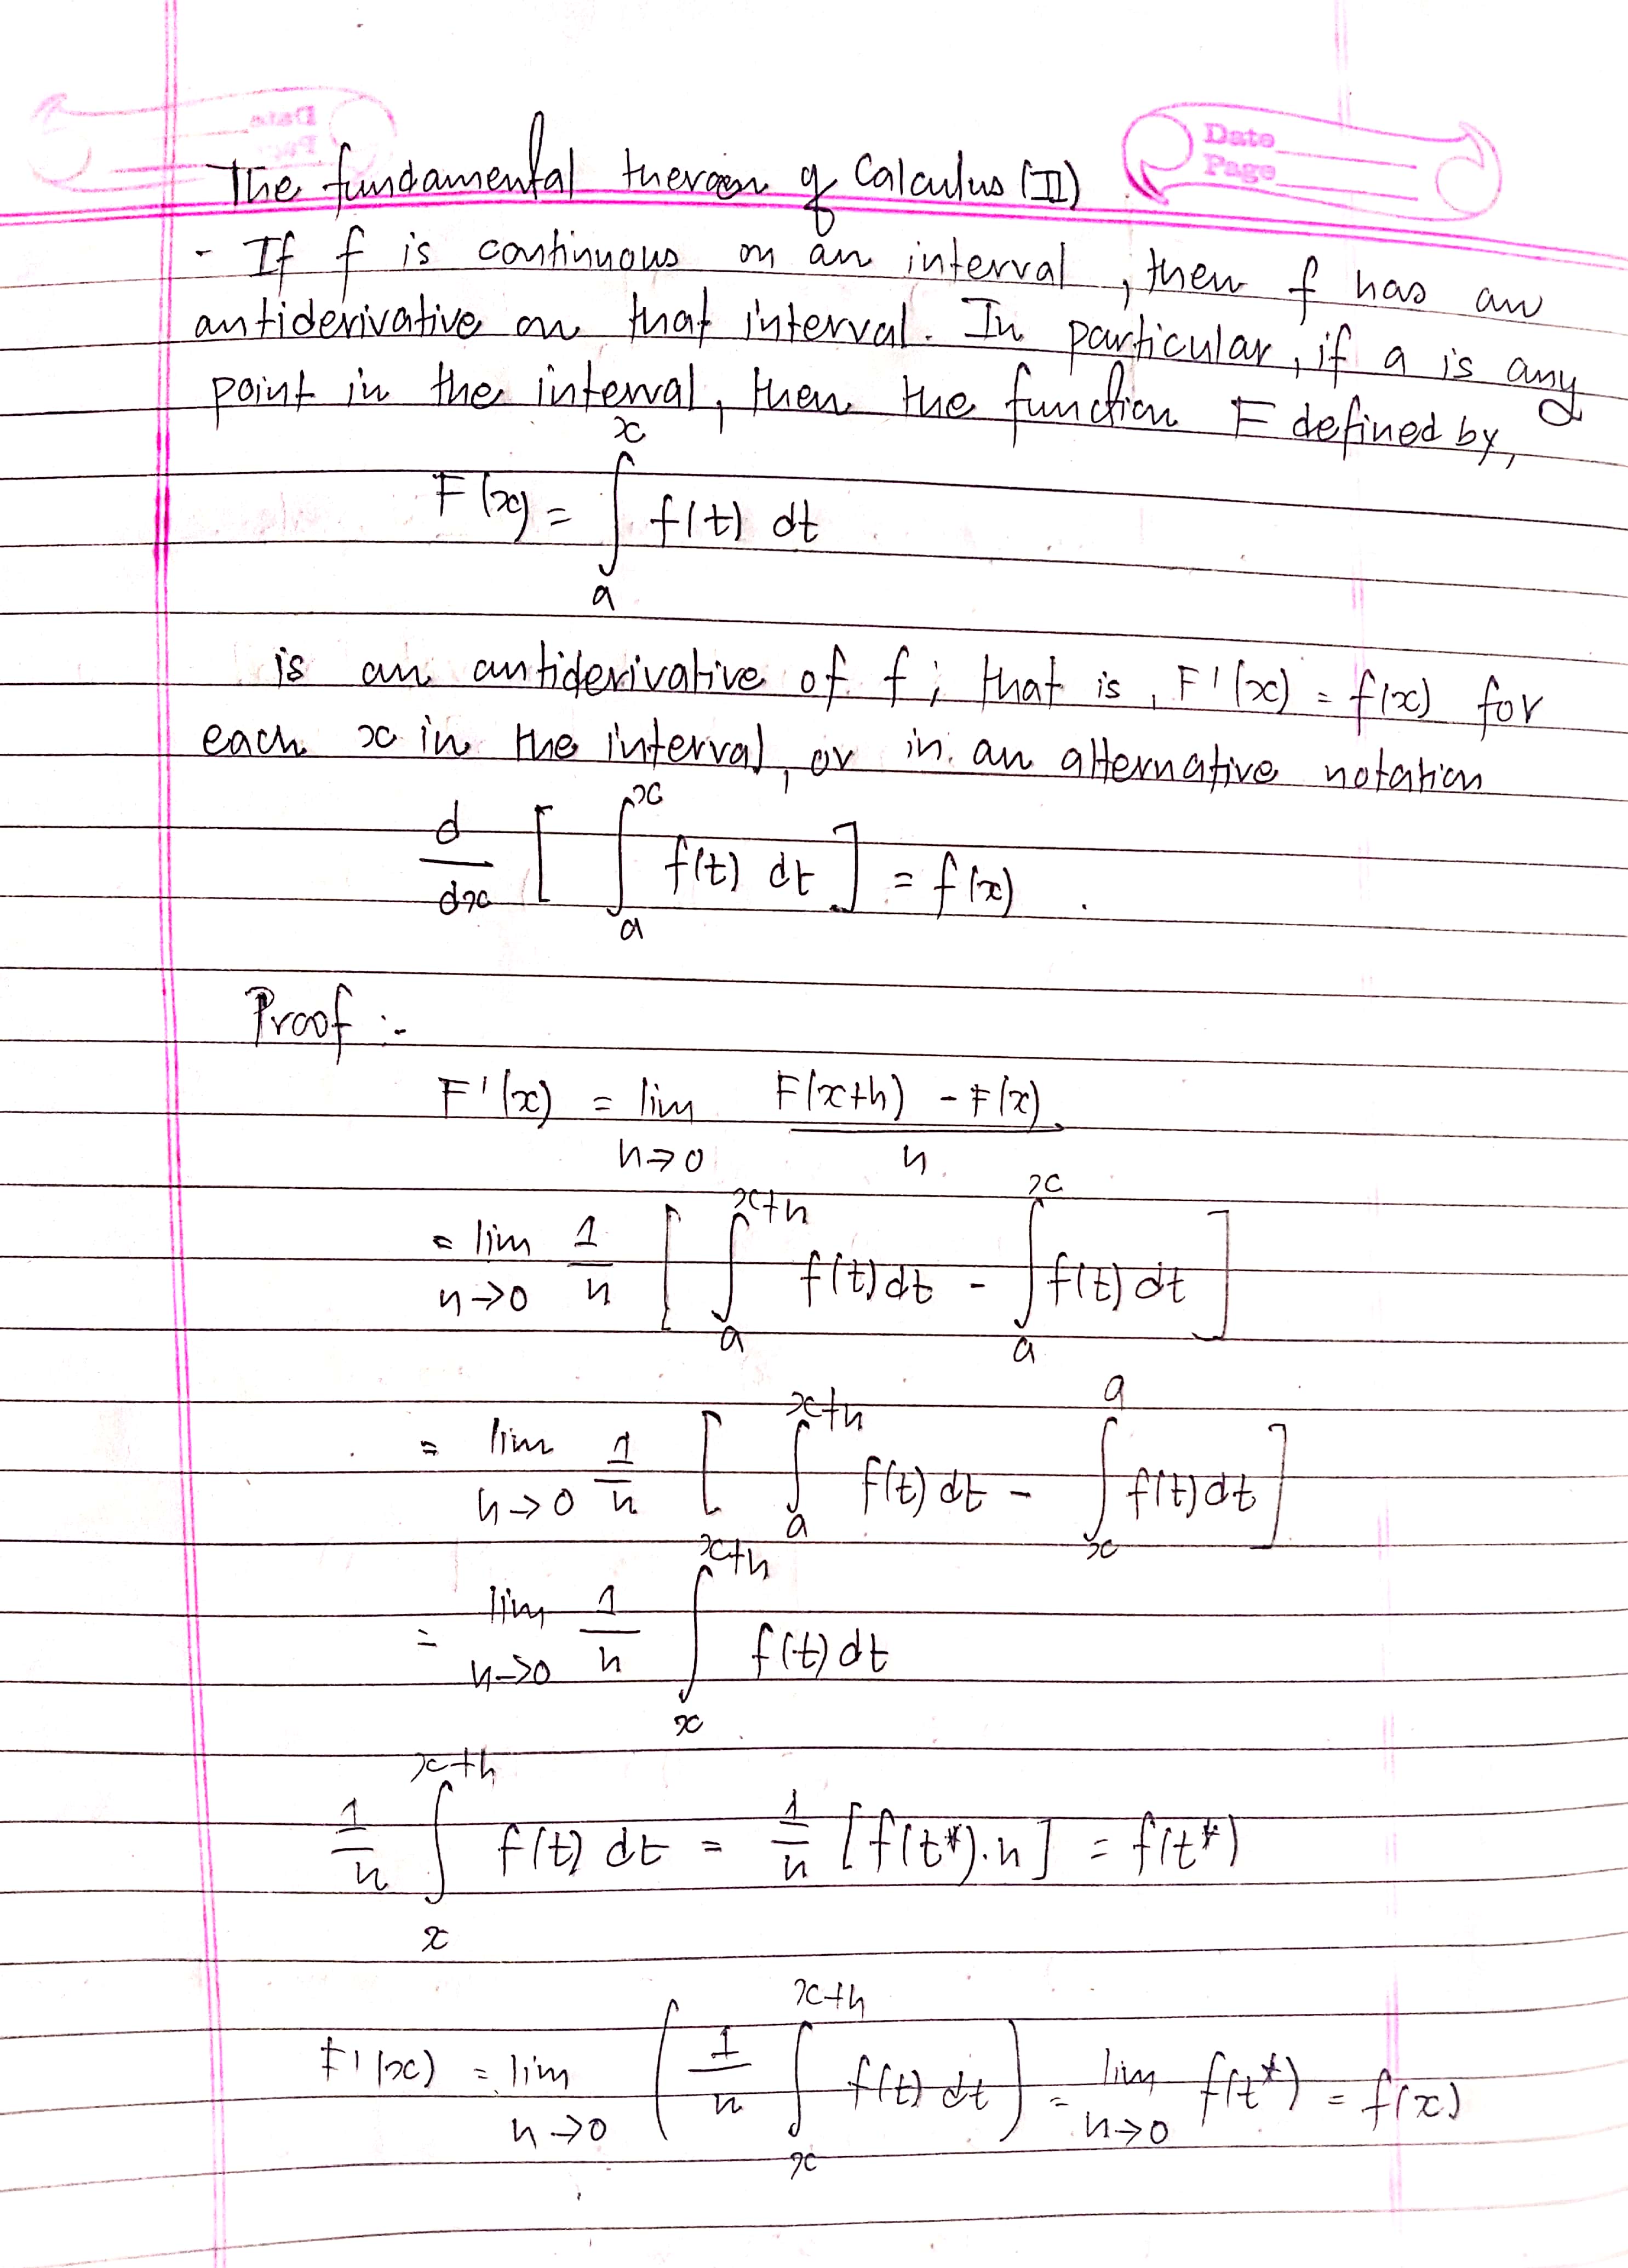 Date
Page
The fundamental theroem of Calculus (II)
- If f is continuous on an interval, then f has an
antiderivative on that interval. In particular, if a is any
point in the interval, then the function F defined by,
F(x) = ∫_a^x f(t) dt
is an antiderivative of f; that is, F'(x) = f(x) for
each x in the interval, or in an alternative notation
d/dx [ ∫_a^x f(t) dt ] = f(x).
Proof :-
F'(x) = lim_{h→0} (F(x+h) - F(x))/h
= lim_{h→0} 1/h [ ∫_a^{x+h} f(t) dt - ∫_a^x f(t) dt ]
= lim_{h→0} 1/h [ ∫_a^{x+h} f(t) dt - ∫_x^a f(t) dt ]
= lim_{h→0} 1/h ∫_x^{x+h} f(t) dt
1/h ∫_x^{x+h} f(t) dt = 1/h [f(t*).h] = f(t*)
F'(x) = lim_{h→0} ( 1/h ∫_x^{x+h} f(t) dt ) = lim_{h→0} f(t*) = f(x)